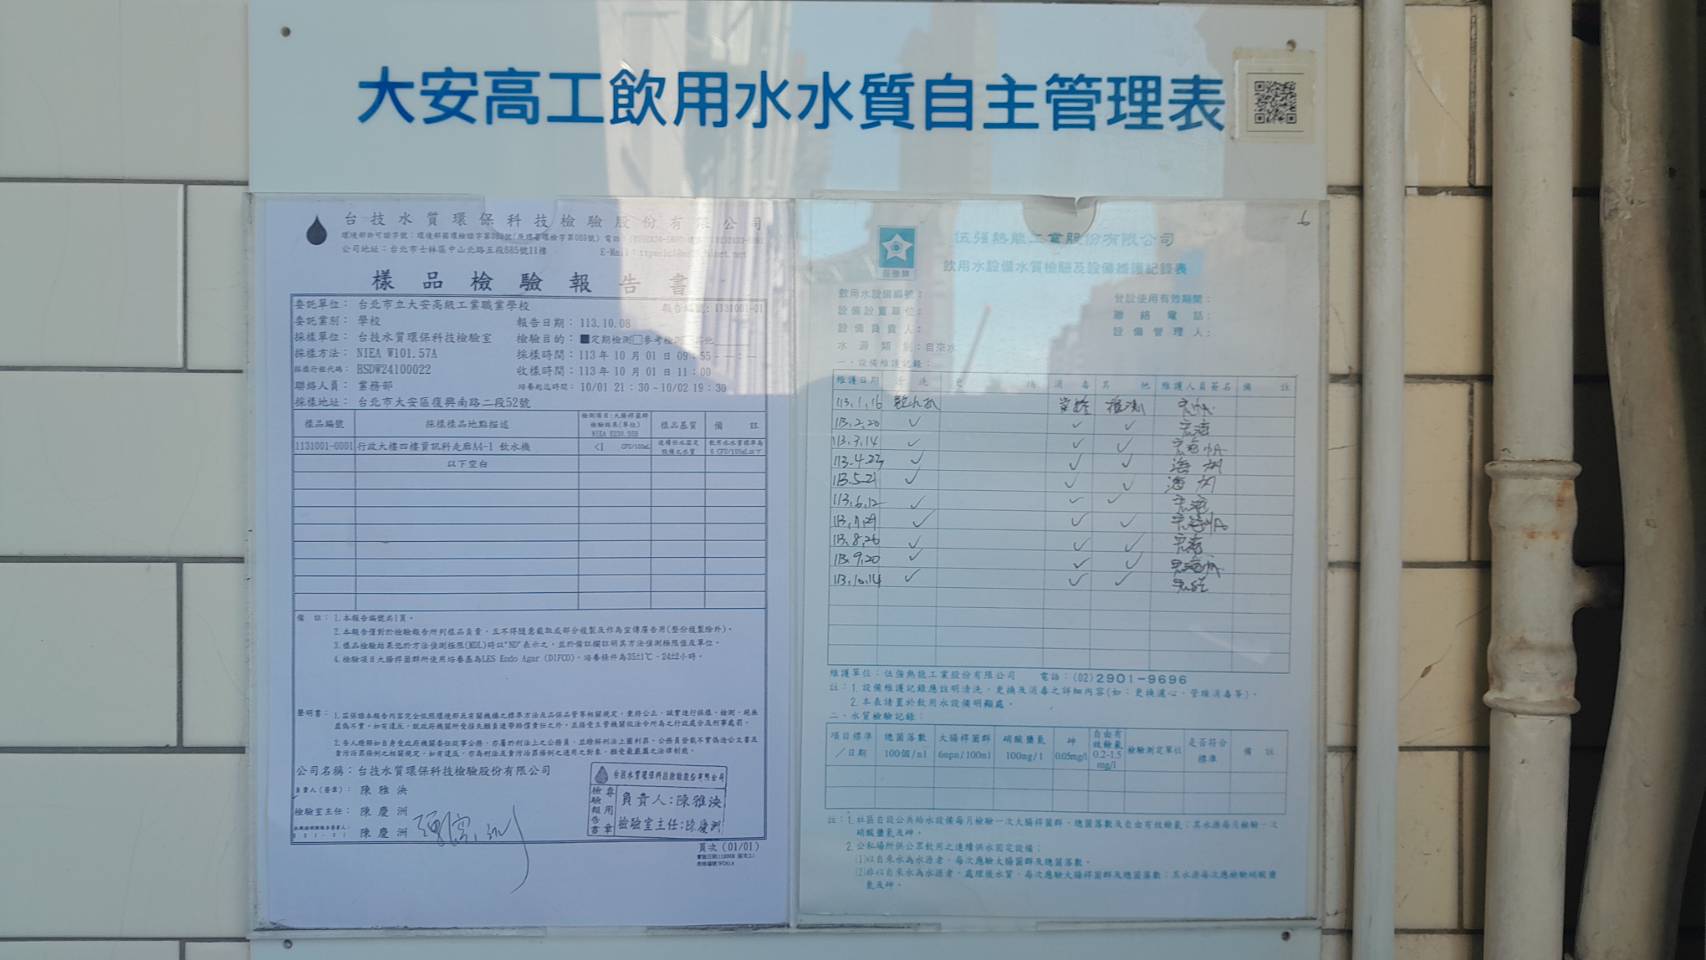 大安高工飲用水水質自主管理表
台技水質環保科技檢驗股份有限公司
公司地址：台北市士林區中山北路五段585號11樓
樣品檢驗報告書
委託單位：台北市立大安高級工業職業學校
報告編號：1131001-01
委託業別：學校
報告日期：113.10.08
採樣單位：台技水質環保科技檢驗室
檢驗目的：■定期檢測□參考檢測□其他
採樣方法：NIEA W101.57A
採樣時間：113年10月01日09:55--:--
採樣行程代碼：ESDW24100022
收樣時間：113年10月01日11:00
聯絡人員：業務部
培養起迄時間：10/01 21:30~10/02 19:30
採樣地址：台北市大安區復興南路二段52號
樣品編號 採樣樣品地點描述 檢測項目:大腸桿菌群 檢驗結果(單位) NIEA E230.55B 樣品基質 備 註
1131001-0001 行政大樓四樓資訊科走廊A4-1 飲水機 <1 CFU/100mL 連續供水固定設備之水質 飲用水水質標準為6 CFU/100mL以下
以下空白
備 註：1.本報告編號共1頁。
2.本報告僅對於檢驗報告所列樣品負責，且不得隨意截取或部分複製及作為宣傳廣告用(整份複製除外)。
3.樣品檢驗結果低於方法偵測極限(MDL)時以"ND"表示之，並於備註欄註明其方法偵測極限值及單位。
4.檢驗項目大腸桿菌群所使用培養基為LES Endo Agar (DIFCO)，培養條件為35±1℃、24±2小時。
聲明書：
公司名稱：台技水質環保科技檢驗股份有限公司
負責人(簽章)：陳雅泱
檢驗室主任：陳慶洲
陳慶洲
台技水質環保科技檢驗股份有限公司
檢驗報告書專用章
負責人:陳雅泱
檢驗室主任:陳慶洲
頁次(01/01)
伍強熱能工業股份有限公司
飲用水設備水質檢驗及設備維護記錄表
飲用水設備編號：
設備設置單位：
設備負責人：
水源類別：自來水
曾設使用有效期間：
聯絡電話：
設備管理人：
一、設備維護記錄：
維護日期 清洗 更換 消毒 其他 維護人員簽名 備註
113.1.16
113.2.20 ✓ ✓ ✓
113.3.14 ✓ ✓ ✓
113.4.23 ✓ ✓ ✓
113.5.21 ✓ ✓ ✓
113.6.12 ✓ ✓ ✓
113.7.29 ✓ ✓ ✓
113.8.26 ✓ ✓ ✓
113.9.20 ✓ ✓ ✓
113.10.14 ✓ ✓ ✓
維護單位：伍強熱能工業股份有限公司 電話：(02)2901-9696
註：1.設備維護記錄應註明清洗、更換及消毒之詳細內容(如：更換濾心、管線消毒等)。
2.本表請置於飲用水設備明顯處。
二、水質檢驗記錄：
項目標準／日期 總菌落數 100個/ml 大腸桿菌群 6mpn/100ml 硝酸鹽氮 100mg/l 砷 0.05mg/l 自由有效餘氯 0.2-1.5 mg/l 檢驗測定單位 是否符合標準 備註
註：1.社區自設公共給水設備每月檢驗一次大腸桿菌群、總菌落數及自由有效餘氯；其水源每月檢驗一次硝酸鹽氮及砷。
2.公私場所供公眾飲用之連續供水固定設備：
(1)以自來水為水源者，每次應驗大腸桿菌群及總菌落數。
(2)非以自來水為水源者，處理後水質，每次應驗大腸桿菌群及總菌落數；其水源每次應檢驗硝酸鹽氮及砷。